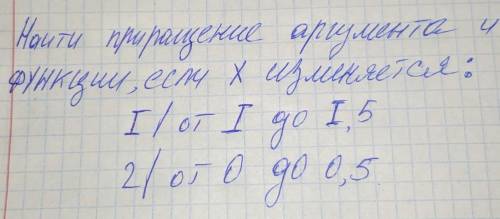 Найти приращение аргумента и
функции, если х изменяется:
I/ от I до I,5
2/ от 0 до 0,5